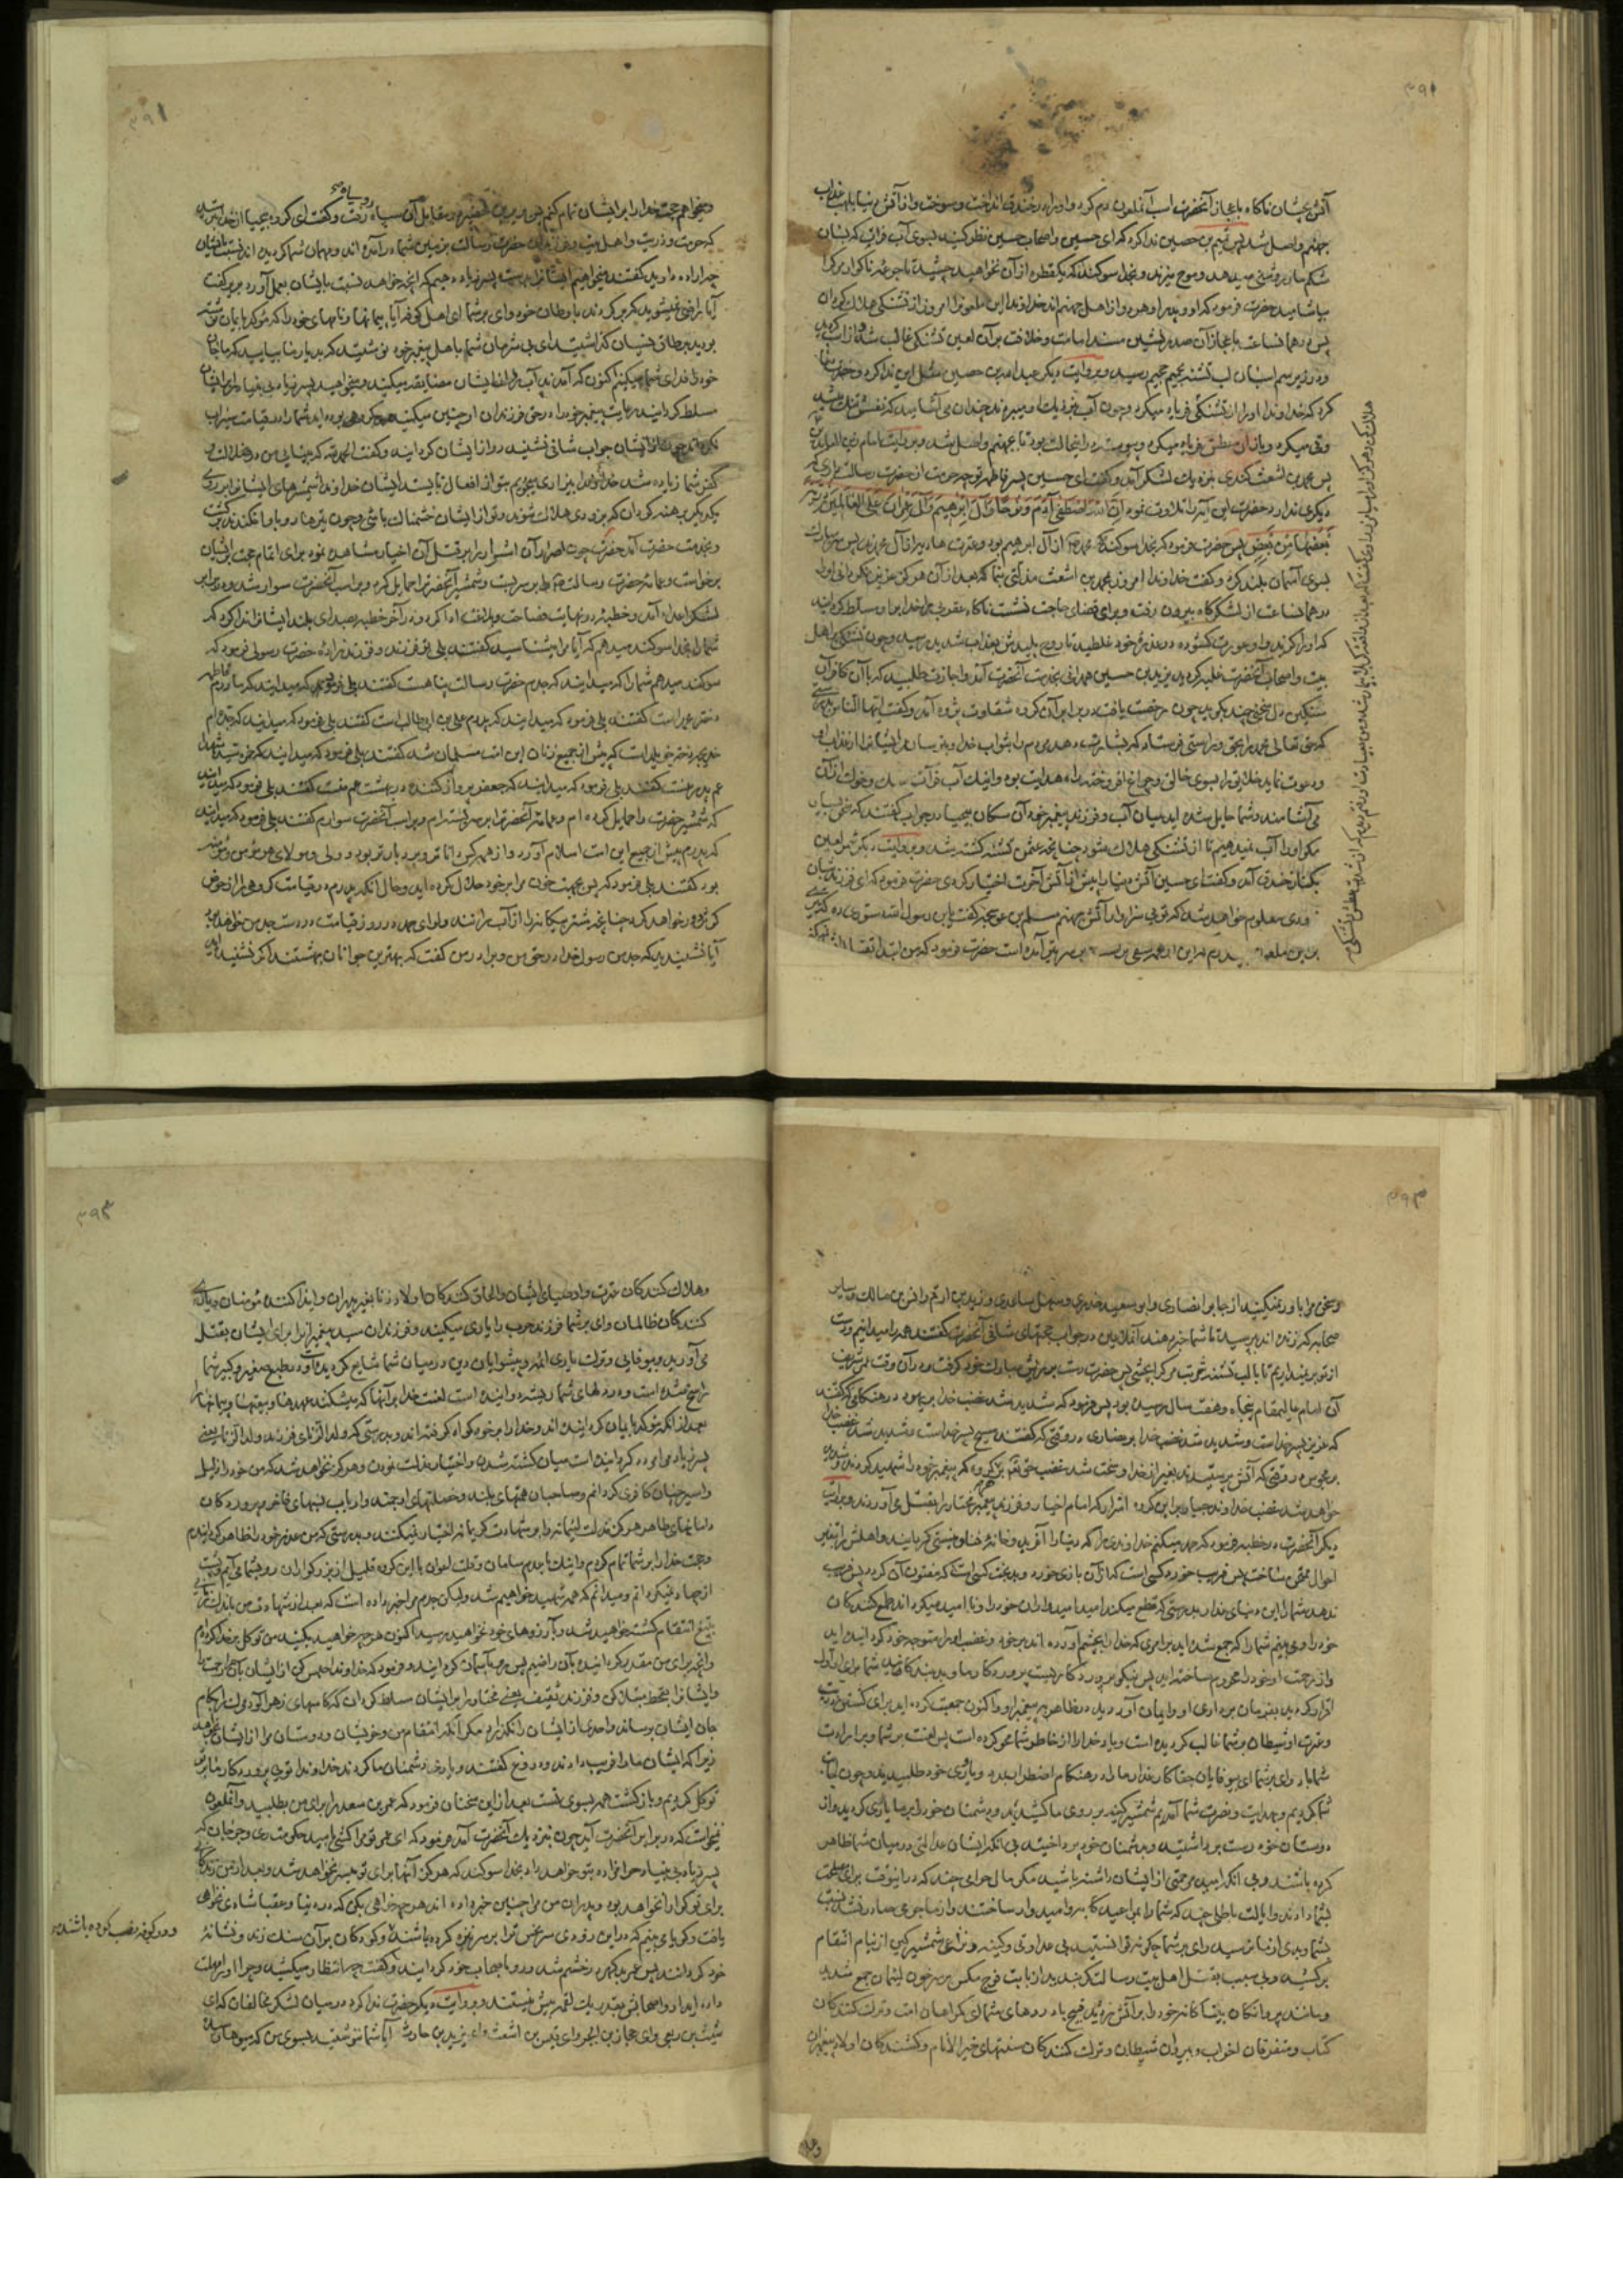 ۳۹۱
آتش بچشان ناگاه باعجاز آنحضرت اسب آنملعون رم کرد و او را در خندق انداخت و سوخت و از آتش دنیا بلهب عذاب
جهنم واصل شد پس تمیم بن حصین ندا کرد که ای حسین و اصحاب حسین نظر کنید بسوی آب فرات که بسان
شکم ماهی میدهد و موج میزند و بخدا سوکند که یکقطره از آن نخواهید چشید تا جرعه ناکوار مرک را
بیاشامید حضرت فرمود که او و پدر او هر دو از اهل جهنم اند خداوندا این ملعونرا امروز از تشنکی هلاک کردان
پس در همانساعت باعجاز آن صدرنشین مسند امامت و خلافت بر آن لعین تشنکی غالب شد و از اسب کردید
و در زیر سم اسبان لب تشنه بجحیم رسید و بروایت دیکر عبدالله بن حصین مثل این ندا کرد و حضرت
کرد که خداوندا او را از تشنکی فریاد میکرد و چون آب نزدیک او میبردند چندان می آشامید که نفسش تنک میشد
و قی میکرد و باز از عطش فریاد میکرد و پیوسته در اینحالت بود تا بجهنم واصل شد و بروایت امام زین العابدین
پس محمد بن اشعث کندی نزدیک لشکر آمد و کفت ای حسین پسر فاطمه تو چه حرمت از حضرت رسالت داری که
دیکری ندارد حضرت این آیه را تلاوت نمود إن الله اصطفى آدم ونوحا وآل إبراهيم وآل عمران على العالمين ذرية
بعضها من بعض پس حضرت فرمود که بخدا سوکند که محمد از آل ابراهیم بود و عترت هادیه از آل محمدند پس سر مبارک
بسوی آسمان بلند کرد و کفت خداوندا امروز بمحمد بن اشعث مذلتی بنما که بعد از آن هرکز عزیز نکردانی او را
در همانساعت از لشکرگاه بیرون رفت و برای قضای حاجت نشست ناگاه عقربی خدا بر او مسلط کردانید
که او را کزید و او عورت کشوده در عذره خود غلطید تا روح پلیدش بعذاب شدید رسید و چون تشنکی بر اهل
بیت و اصحاب آنحضرت غلبه کرد یزید بن حسین همدانی بخدمت آنحضرت آمد و اجازت طلبید که با آن کافران
سنکین دل سخنی چند بکوید چون رخصت یافت در برابر آن کروه شقاوت پژوه آمد و کفت ایها الناس بدرستی
که حق تعالی محمد را بحق و براستی فرستاد که بشارت دهد مردم را بثواب خدا و بترساند ایشانرا از عذاب او
و دعوت نماید خلایق را بسوی خالق و چراغ افروخته راه هدایت بود و اینک آب فرات سک و خوک از آن
می آشامند و شما حایل شده اید میان آب و فرزند پیغمبر خود آن سکان بیحیا در جواب کفتند که
مکو او را آب نمیدهیم تا از تشنکی هلاک شود چنانچه عثمن تشنه کشته شد و بروایت دیکر شمر لعین
بکنار خندق آمد و کفت ای حسین آتش دنیا را پیش از آتش آخرت اختیار کردی حضرت فرمود که ای فرزند شبان
زودی معلوم خواهد شد که تو بی سزاوار آتش جهنم مسلم بن عوسجه کفت یابن رسول الله دستوری ده که تیری
براین ملعون حضرت فرمود که من ابتدا بقتال
۳۹۱
میخواهم حجت خدا را بر ایشان تمام کنم پس بریر بن خضیر در مقابل آن سیاه رو سپاه رفت و کفت ای کروه بیحیا از خدا بترسید
که حرمت و ذریت و اهل بیت و فرزندان حضرت رسالت بزمین شما در آمده اند و مهمان شما کردیده اند نسبت بایشان
چه اراده دارید کفتند میخواهیم ایشانرا بدست پسر زیاد دهیم که آنچه خواهد نسبت بایشان بعمل آورد بریر کفت
آیا راضی نمیشوید که برکردند باوطان خود وای بر شما ای اهل کوفه آیا پیمانها و نامهای خود را که مؤکد بایمان نوشته
بودید بر طاق نسیان کذاشتید ای بی شرمان شما باهل پیغمبر خود نوشتید که بدیار ما بیایید که ما جان
خود را فدای شما میکنیم اکنون که آمدند آب را از ایشان مضایقه میکنید و میخواهید پسر زیاد بی بنیاد را بر ایشان
مسلط کردانید رعایت پیغمبر خود را در حق فرزندان او چنین میکنید بد کروهی بوده اید شما را در قیامت سیراب
نکرداند چون از ایشان جواب شافی نشنید رو از ایشان کردانید و کفت الحمد لله که بینایی من در ضلالت و
کفر شما زیاده شد خداوندا بیزاری میجویم بتو از افعال ناپسند ایشان خداوندا شمشیرهای ایشانرا بر روی
یکدیکر برهنه کردان که بزودی هلاک شوند و تو از ایشان خشمناک باشی و چون تیرها رو باو افکندند برکشت
و بخدمت حضرت آمد حضرت چون اصرار آن اشرار را بر قتل آن اخیار مشاهده نمود برای اتمام حجت بر ایشان
برخاست و عمامه حضرت رسالت را بر سر بست و شمشیر آنحضرترا حمایل کرد و بر اسب آنحضرت سوار شد و در برابر
لشکر اعدا آمد و خطبه در نهایت فصاحت و بلاغت ادا کرد و در آخر خطبه بصدای بلند ایشانرا ندا کرد که
شما را بخدا سوکند میدهم که آیا مرا میشناسید کفتند بلی تو فرزند و فرزندزاده حضرت رسولی فرمود که
سوکند میدهم شما را که میدانید که جدم حضرت رسالت پناهست کفتند بلی فرمود که میدانید که مادرم فاطمه
دختر محمد است کفتند بلی فرمود که میدانید که پدرم علی بن ابی طالب است کفتند بلی فرمود که میدانید که جده ام
خدیجه دختر خویلد است که پیش از جمیع زنان این امت مسلمان شد کفتند بلی فرمود که میدانید که حمزه سید شهدا
عم پدر منست کفتند بلی فرمود که میدانید که جعفر پرواز کننده در بهشت عم منست کفتند بلی فرمود که میدانید
که شمشیر حضرت را حمایل کرده ام و عمامه آنحضرترا بر سر بسته ام و بر اسب آنحضرت سوارم کفتند بلی فرمود که میدانید
که پدرم پیش از جمیع این امت اسلام آورد و از همه کس داناتر و بردبارتر بود و ولی و مولای هر مؤمن و مؤمنه
بود کفتند بلی فرمود که پس بچه جهت خون مرا بر خود حلال کرده اید و حال آنکه پدرم در قیامت کروهی را از حوض
کوثر دور خواهد کرد چنانچه شتر بیکانه را از آب رانند و لوای حمد در روز قیامت در دست جد من خواهد بود
آیا نشنیدید که جد من رسول خدا در حق من و برادر من کفت که بهترین جوانان بهشتند اکر نشنیده اید
۳۹۳
و سخن مرا باور نمیکنید از جابر انصاری و ابو سعید خدری و سهل ساعدی و زید بن ارقم و انس بن مالک و سایر
صحابه که زنده اند بپرسید تا شما خبر دهند آنملاعین در جواب حجتهای شافی آنحضرت کفتند همه را میدانیم و دست
از تو بر نمیداریم تا با لب تشنه شربت مرک را بچشی پس حضرت دست بر ریش مبارک خود کرفت و در آن وقت عمر شریف
آن امام عالیمقام بپنجاه و هفت سال رسیده بود پس فرمود که شدید شد غضب خدا بر یهود در هنکامی که کفتند
که عزیر پسر خداست و شدید شد غضب خدا بر نصاری در وقتی که کفتند مسیح پسر خداست و شدید شد غضب خدا
بر مجوس در وقتی که آتش پرستیدند بغیر از خدا و سخت شد غضب حق تعالی بر کروهی که پیغمبر خود را شهید کردند و شدید
خواهد شد غضب خداوند جبار بر این کروه اشرار که امام اخیار و فرزند پیغمبر مختار را بقتل می آورند و بروایت
دیکر آنحضرت در خطبه فرمود که حمد میکنم خداوندی را که دنیا را آفرید و خانه فنا و نیستی کردانید و اهلش را بتغیر
احوال ممتحن ساخت پس فریب خورده کسی است که از آن بازی خورد و بدبخت کسی است که مفتون آن کردد پس فریب
ندهد شما را این دنیای غدار بدرستی که قطع میکند امید امیدواران خود را و نا امید میکرداند طمع کنندکان
خود را و می بینم شما را که جمع شده اید برامری که خدا را بخشم آورده اند بر خود و غضب او را متوجه خود کردانیده اید
و از رحمت او خود را محروم ساخته اید پس نیکو پروردکاریست پروردکار ما و بد بندکانید شما برای او اول
اقرار کردید بفرمان برداری او و ایمان آوردید در ظاهر به پیغمبر او و اکنون جمعیت کرده اید برای کشتن ذریت
و عترت او شیطان بر شما غالب کردیده است و یاد خدا را از خاطر شما محو کرده است پس لعنت بر شما و بر ارادت
شما باد وای بر شما ای بیوفایان جفاکار غدار ما را در هنکام اضطرار بمدد و یاری خود طلبیدید و چون اجابت
شما کردیم و بهدایت و نصرت شما آمدیم شمشیر کینه بر روی ما کشیدید و دشمنان خود را بر ما یاری کردید و از
دوستان خود دست برداشتید و بدشمنان خود پرداختید بی آنکه ایشان عدالتی در میان شما ظاهر
کرده باشند و بی آنکه امید مرحمتی از ایشان داشته باشید مکر مال حرامی چند که در اینوقت برای مصلحت
بشما دادند و ایالت باطلی چند که شما را بمواعید کاذبه امیدوار ساختند و از ما جرمی صادر نشد نسبت
بشما و بدی از ما نرسید وای بر شما چکونه توانستید بی عداوتی و کینه و نزاعی شمشیر کین از نیام انتقام
برکشید و بی سبب بقتل اهل بیت رسالت کمر بندید از بابت فوج مکس بر سر خون لئیمان جمع شدید
و مانند پروانکان بیتابانه خود را بر آتش زدید قبیح باد روهای شما ای کمراهان امت و ترک کنندکان
کتاب و متفرقان احزاب و پیروان شیطان و ترک کنندکان سنتهای خیر الانام و کشندکان اولاد پیغمبران
۳۹۴
و هلاک کنندکان عترت و اوصیای ایشان و الحاق کنندکان اولاد زنا بغیر پدران و ایذا کننده مؤمنان و یاری
کنندکان ظالمان وای بر شما فرزند حرب را یاری میکنید و فرزندان سید پیغمبرانرا برای ایشان بقتل
می آورید و بیوفایی و ترک یاری ائمه و پیشوایان دین در میان شما شایع کردیده است و در طبع صغیر و کبیر شما
راسخ شده است و در دلهای شما ریشه دوانیده است لعنت خدا بر آنها که میشکنند عهدها و بیعتها و پیمانها را
بعد از آنکه مؤکد بایمان کردانیده اند و خدا را بر خود کواه کرفته اند و بدرستی که ولد الزنای فرزند ولد الزنا یعنی
پسر زیاد مرا مردد کردانیده است میان کشته شدن و اختیار مذلت نمودن و هرکز نخواهد شد که من خود را ذلیل
و اسیر چنان کافری کردانم و صاحبان همتهای بلند و خصلتهای ارجمند و ارباب نسبهای فاخر و پرورده کان
دامانهای طاهر هرکز مذلت لئیمانرا بر شهادت کریمانه اختیار نمیکنند و بدرستی که من عذر خود را ظاهر کردانیدم
و حجت خدا را بر شما تمام کردم و اینک با عدم سامان و قلت اعوان با این کروه قلیل از بزرکواران رو بشما می آورم و پشت
از جهاد نمیکردانم و میدانم که همه شهید خواهیم شد ولیکن جدم مرا خبر داده است که بعد از شهادت من باندک زمانی
بتیغ انتقام کشته خواهید شد و بآرزوهای خود نخواهید رسید اکنون هر چه خواهید بکنید من توکل بر خدا کرده ام
و آنچه برای من مقدر کردانیده بآن راضیم پس رو بآسمان کردانید و فرمود که خداوندا حبس کن از ایشان باران رحمت را
و ایشانرا بقحط مبتلا کن و فرزند ثقیف یعنی مختار را بر ایشان مسلط کردان که کاسهای زهر آلود مرک را بکام
جان ایشان برساند و احدی از ایشان را نکذارد مکر آنکه انتقام من و خویشان و دوستان مرا از ایشان بخواهد
زیرا که ایشان ما را فریب دادند و دروغ کفتند و یاری دشمنان ما کردند خداوندا تویی پروردکار ما بر تو
توکل کردیم و بازکشت همه بسوی تست بعد از این سخنان فرمود که عمر بن سعد را برای من بطلبید و آنملعون
نمیخواست که در برابر آنحضرت آید چون بنزدیک آنحضرت آمد فرمود که ای عمر تو مرا میکشی بامید حکومت ری و جرجان که
پسر زیاد بی بنیاد حرامزاده بتو خواهد داد بخدا سوکند که هرکز آنها برای تو میسر نخواهد شد و بعد از من زندکانی
برای تو کوارا نخواهد بود و پدران من مرا چنین خبر داده اند هر چه خواهی بکن که در دنیا و عقبا شادی نخواهی
یافت و کویا می بینم که در این زودی سر نحس ترا بر سر نیزه کرده باشند و کودکان بر آن سنک زنند و نشانه
و در کوفه نصب کرده باشند
خود کردانند پس عمر بد کهر در خشم شد و رو باصحاب خود کردانید و کفت چه انتظار میکشید و چرا او را مهلت
داده اید او و اصحابش بقدر یک لقمه بیش نیستند و بروایت دیکر حضرت ندا کرد در میان لشکر مخالفان که ای
شبث بن ربعی و ای حجار بن ابجر و ای قیس بن اشعث و ای یزید بن حارث آیا شما ننوشتید بسوی من که میوهای